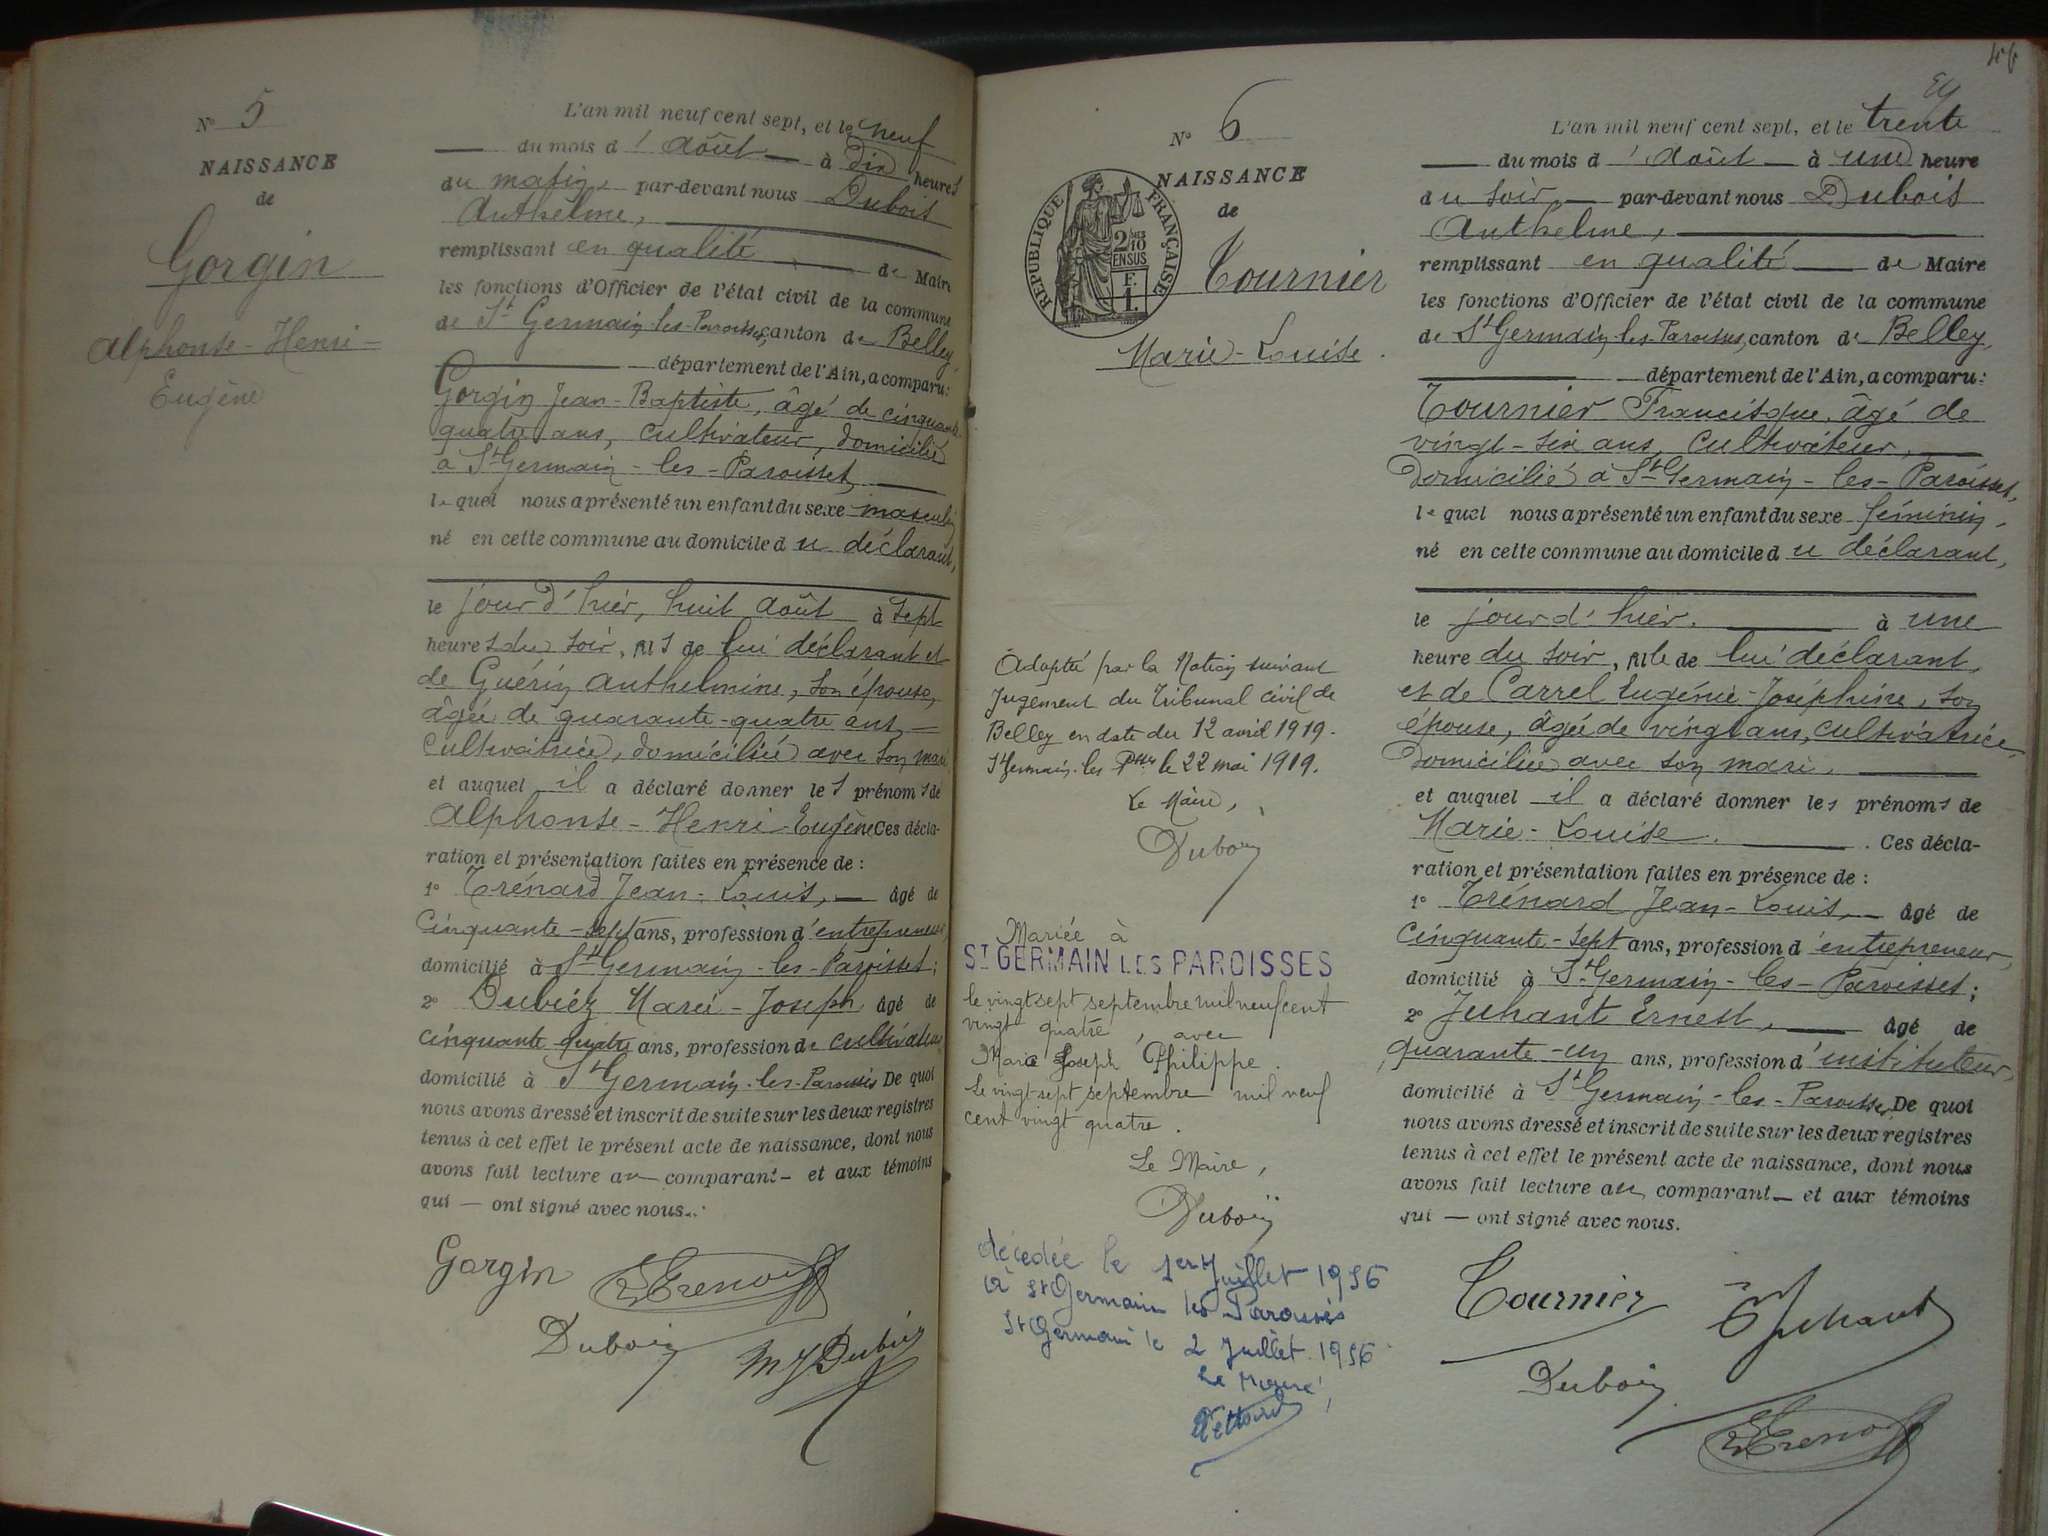 N° 5
NAISSANCE
de
Gorgin
Alphonse-Henri-
Eugène
L'an mil neuf cent sept, et le neuf
du mois d'août à dix heures
du matin, par-devant nous Dubois
Anthelme,
remplissant en qualité de Maire
les fonctions d'Officier de l'état civil de la commune
de St Germain-les-Paroisses, canton de Belley,
département de l'Ain, a comparu:
Gorgin Jean-Baptiste, âgé de cinquante-
quatre ans, cultivateur, domicilié
à St Germain-les-Paroisses,
lequel nous a présenté un enfant du sexe masculin,
né en cette commune au domicile du déclarant,
le jour d'hier, huit août à sept
heures du soir, fils de lui déclarant et
de Guérin Anthelmine, son épouse,
âgée de quarante-quatre ans,
cultivatrice, domiciliée avec son mari
et auquel il a déclaré donner les prénoms de
Alphonse-Henri-Eugène Ces décla-
ration et présentation faites en présence de :
1° Trénard Jean-Louis, âgé de
cinquante-sept ans, profession d'entrepreneur,
domicilié à St Germain-les-Paroisses;
2° Dubiez Marie-Joseph, âgé de
cinquante-quatre ans, profession de cultivateur,
domicilié à St Germain-les-Paroisses De quoi
nous avons dressé et inscrit de suite sur les deux registres
tenus à cet effet le présent acte de naissance, dont nous
avons fait lecture au comparant et aux témoins
qui ont signé avec nous.
Gorgin
Trenard
Dubois
M J Dubiez
N° 6
NAISSANCE
de
RÉPUBLIQUE FRANÇAISE
2/10
EN SUS
F.
1
Tournier
Marie-Louise.
Adoptée par la Nation suivant
Jugement du Tribunal civil de
Belley en date du 12 avril 1919.
St Germain-les-Psses le 22 mai 1919.
Le Maire,
Dubois
Mariée à
ST GERMAIN LES PAROISSES
le vingt sept septembre mil neuf cent
vingt quatre, avec
Marie Joseph Philippe.
Le vingt sept septembre mil neuf
cent vingt quatre.
Le Maire,
Dubois
décédée le 1er Juillet 1956
à St Germain les Paroisses
St Germain le 2 Juillet 1956
Le Maire,
L'an mil neuf cent sept, et le trente
du mois d'août à une heure
du soir, par-devant nous Dubois
Anthelme,
remplissant en qualité de Maire
les fonctions d'Officier de l'état civil de la commune
de St Germain-les-Paroisses, canton de Belley,
département de l'Ain, a comparu:
Tournier Francisque, âgé de
vingt-six ans, cultivateur,
domicilié à St Germain-les-Paroisses,
lequel nous a présenté un enfant du sexe féminin,
né en cette commune au domicile du déclarant,
le jour d'hier, à une
heure du soir, fille de lui déclarant,
et de Carrel Eugénie-Joséphine, son
épouse, âgée de vingt ans, cultivatrice,
domiciliée avec son mari,
et auquel il a déclaré donner les prénoms de
Marie-Louise. Ces décla-
ration et présentation faites en présence de :
1° Trénard Jean-Louis, âgé de
cinquante-sept ans, profession d'entrepreneur,
domicilié à St Germain-les-Paroisses;
2° Juhant Ernest, âgé de
quarante-un ans, profession d'instituteur,
domicilié à St Germain-les-Paroisses De quoi
nous avons dressé et inscrit de suite sur les deux registres
tenus à cet effet le présent acte de naissance, dont nous
avons fait lecture au comparant et aux témoins
qui ont signé avec nous.
Tournier
E Juhant
Dubois
Trenard